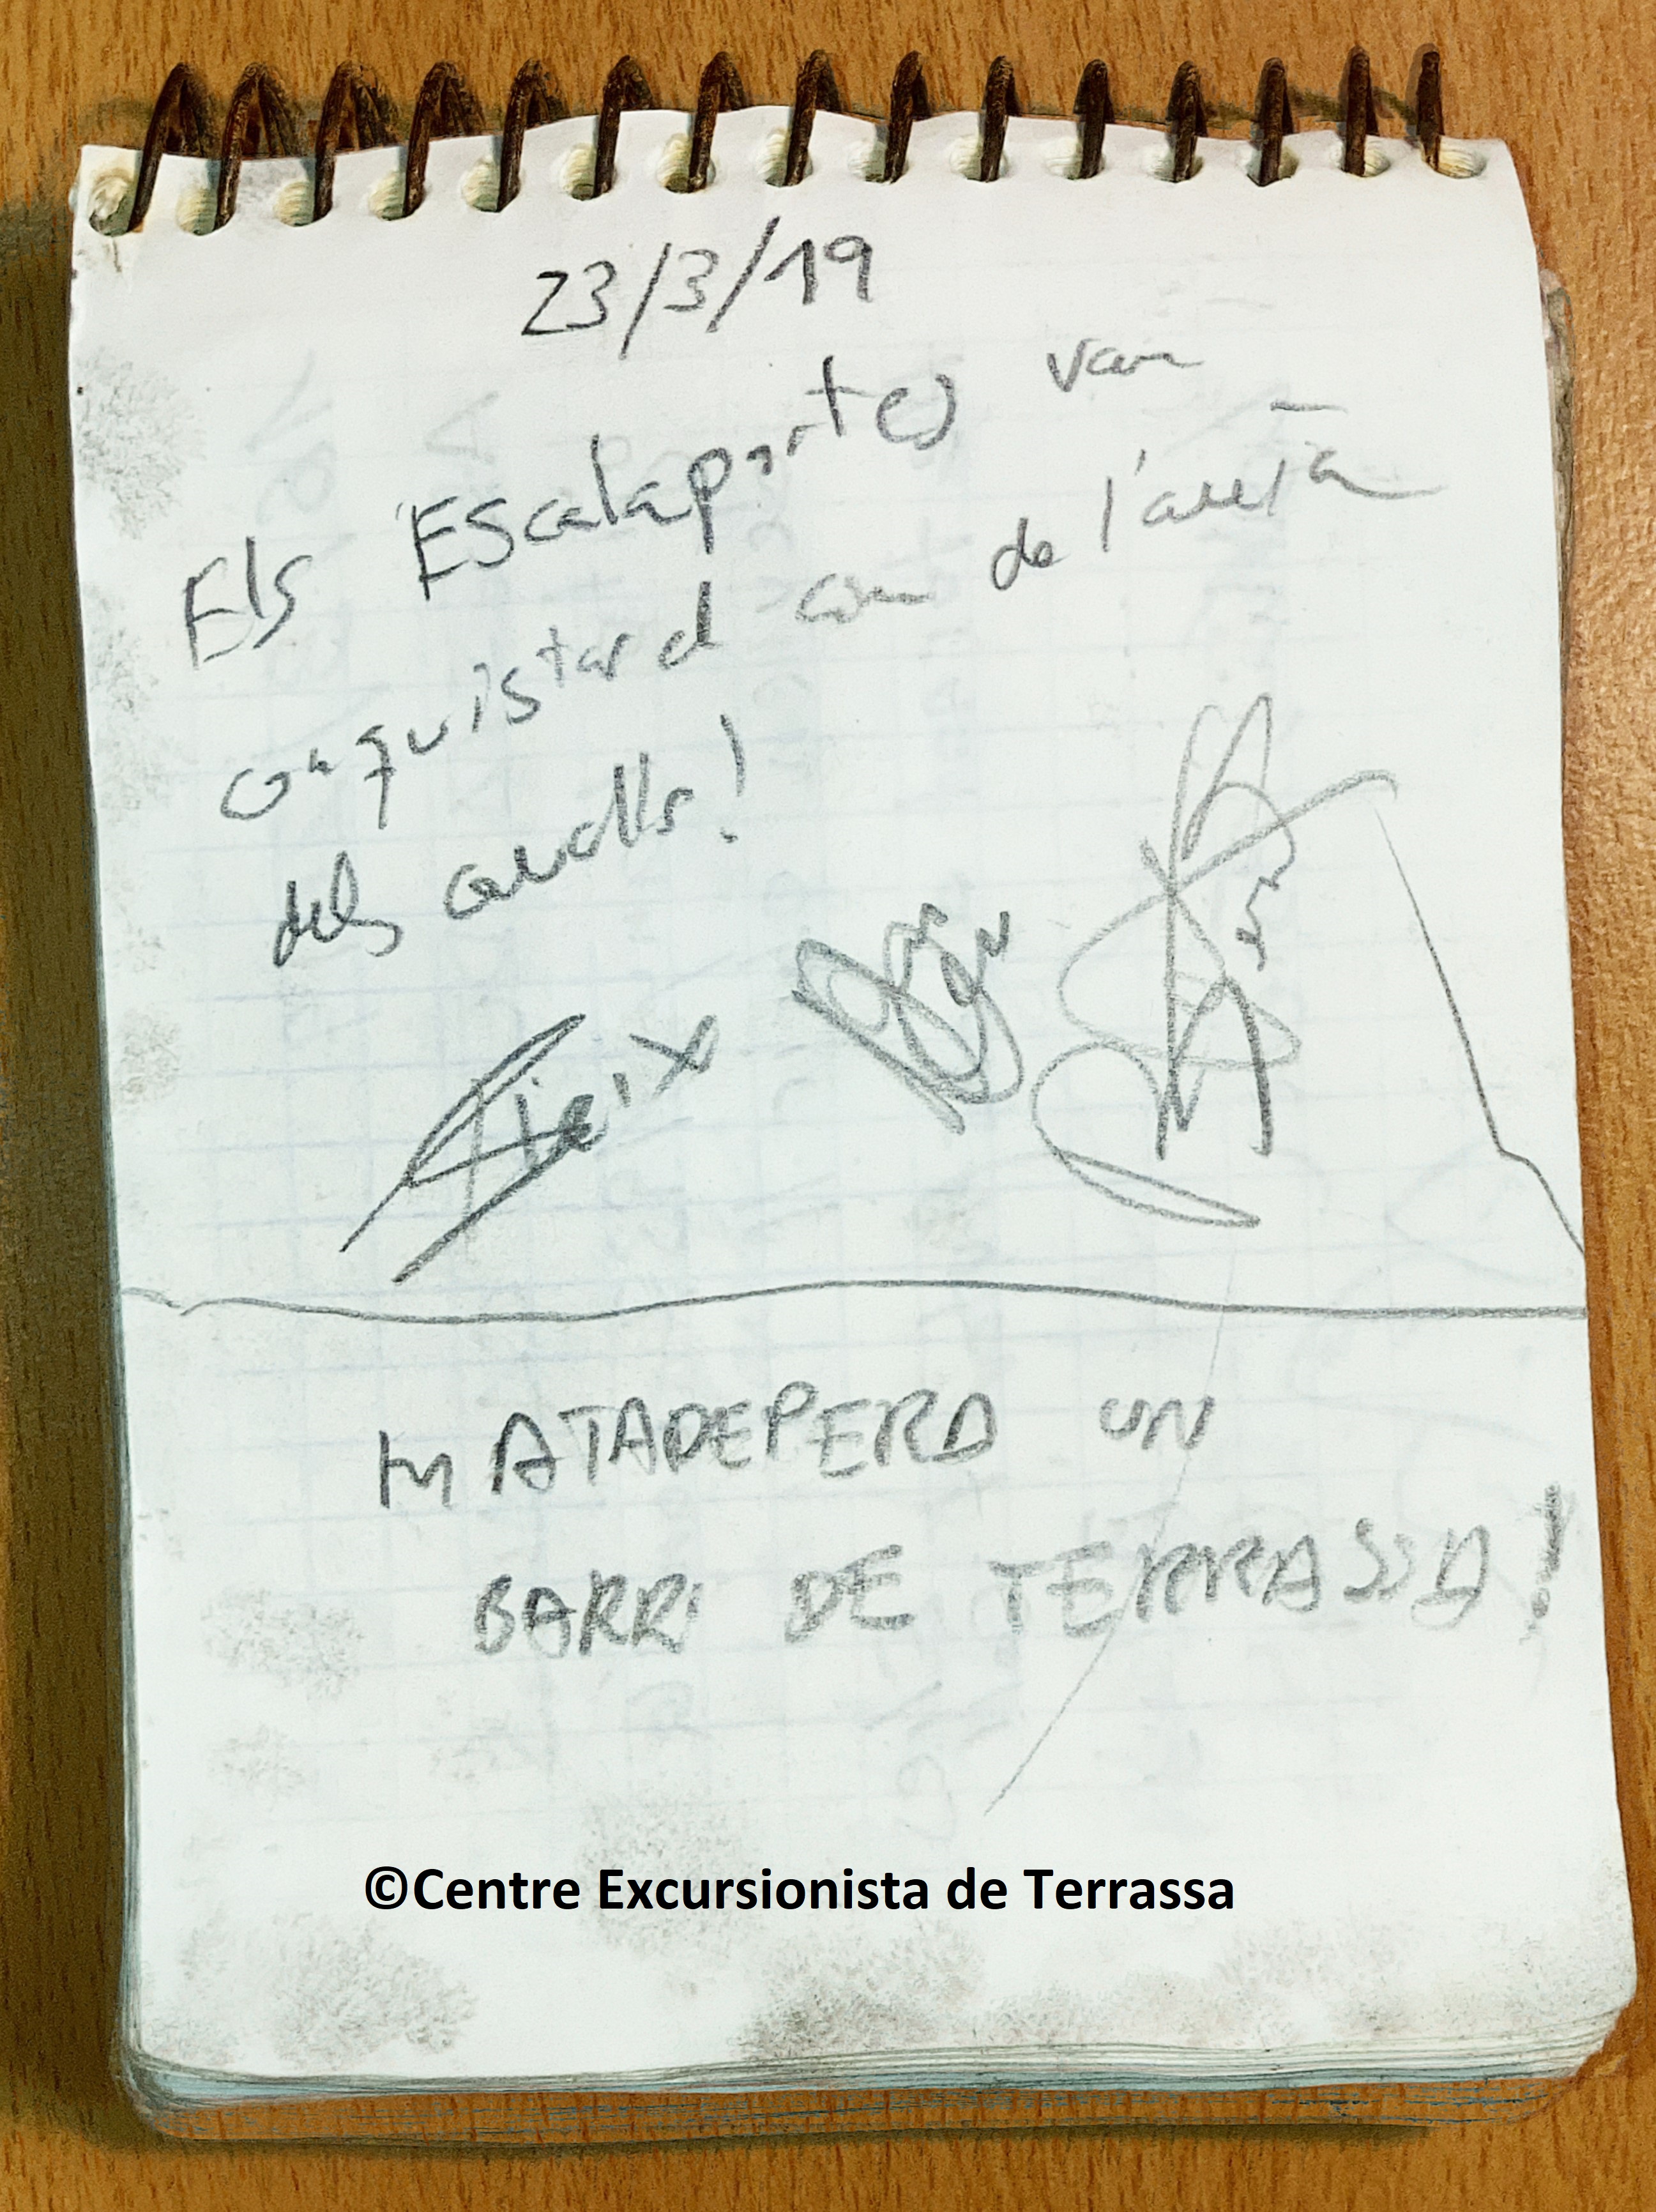 23/3/19
Els Escalaportes van
conquistar el de
dels cavalls!
MATADEPERA UN
BARRI DE TERRASSA!
©Centre Excursionista de Terrassa